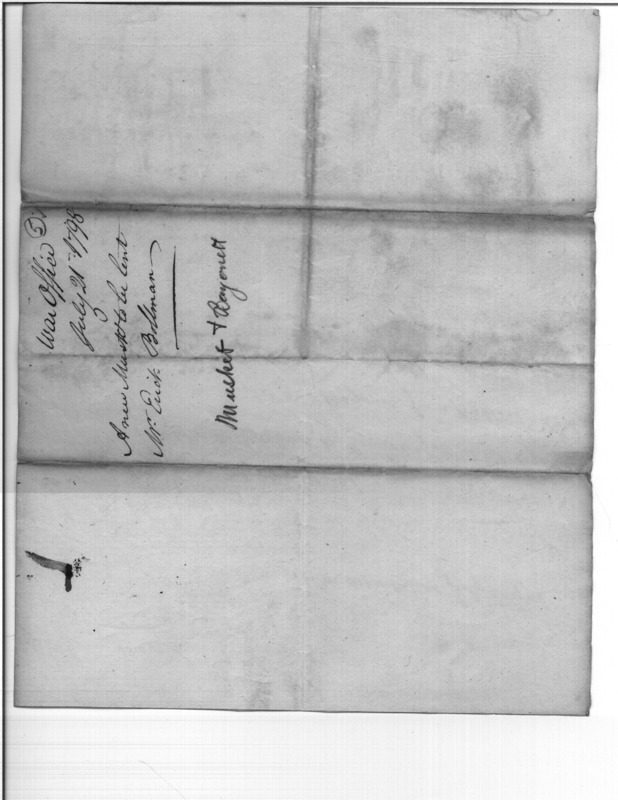 War Office (5)
July 21st 1798
A new Musket to be lent
Mr. Erick Bollman
Musket & Bayonett